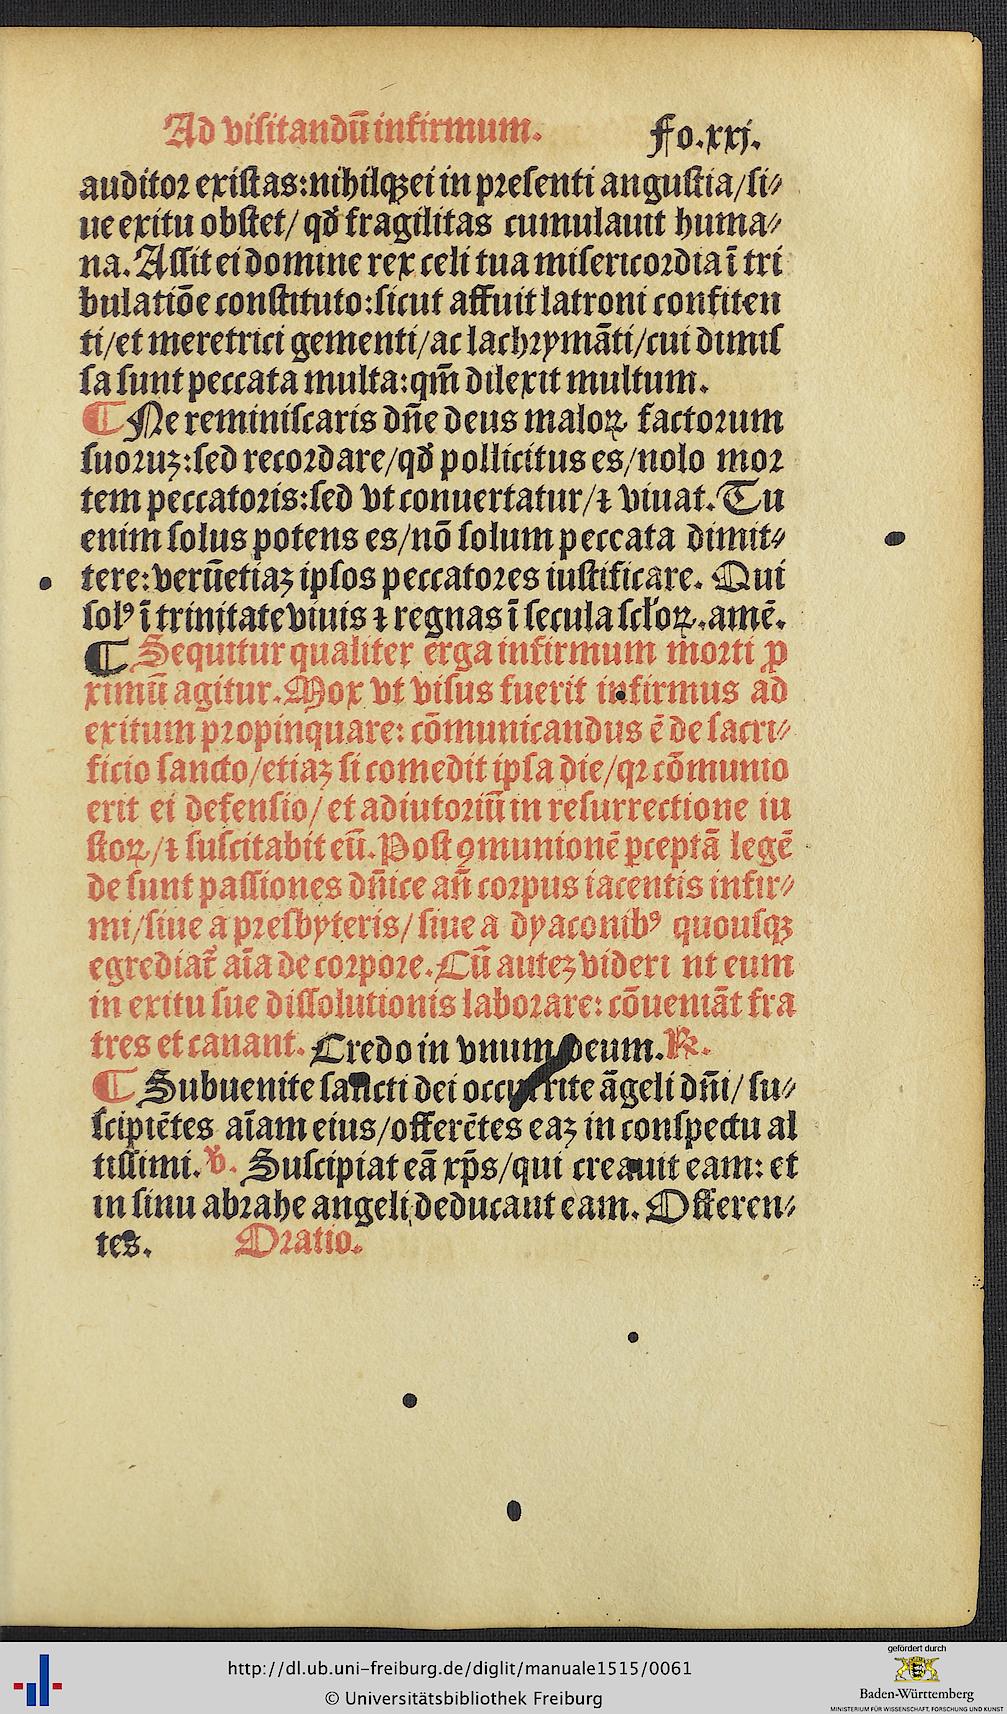 Ad visitandū infirmum. Fo.xxj.
auditor existas: nihilqꝫ ei in presenti angustia/si⸗
ue exitu obstet/ qď fragilitas cumulauit huma⸗
na. Assit ei domine rex celi tua misericordia ī tri
bulatiōe constituto: sicut affuit latroni confiten
ti/et meretrici gementi/ac lachrymāti/cui dimis
sa sunt peccata multa: qm̄ dilexit multum.
¶ Ne reminiscaris dn̄e deus maloꝝ factorum
suoruꝫ: sed recordare/qď pollicitus es/nolo mor
tem peccatoris: sed vt conuertatur/⁊ viuat. Tu
enim solus potens es/nō solum peccata dimit⸗
tere: verūetiaꝫ ipsos peccatores iustificare. Qui
solꝰ ī trinitate viuis ⁊ regnas ī secula scl'oꝝ. amē.
¶ Sequitur qualiter erga infirmum morti ꝓ
ximū agitur. Mox vt visus fuerit infirmus ad
exitum propinquare: cōmunicandus ē de sacri⸗
ficio sancto/etiaꝫ si comedit ipsa die/qꝛ cōmunio
erit ei defensio/ et adiutoriū in resurrectione iu
stoꝝ/⁊ suscitabit eū. Post ꝯmunionē ꝑceptā legē
de sunt passiones dn̄ice an̄ corpus iacentis infir⸗
mi/siue a presbyteris/ siue a dyaconibꝰ quousqꝫ
egrediat᷑ aīa de corpore. Cū auteꝫ videri nt eum
in exitu sue dissolutionis laborare: cōueniāt fra
tres et canant. Credo in vnum deum. ℟.
¶ Subuenite sancti dei occurrite āgeli dn̄i/ su⸗
scipiētes aīam eius/offerētes eaꝫ in conspectu al
tissimi. ℣. Suscipiat eā xp̄s/qui creauit eam: et
in sinu abrahe angeli deducant eam. Offeren⸗
tes. Oratio.
http://dl.ub.uni-freiburg.de/diglit/manuale1515/0061
© Universitätsbibliothek Freiburg
gefördert durch
Baden-Württemberg
MINISTERIUM FÜR WISSENSCHAFT, FORSCHUNG UND KUNST